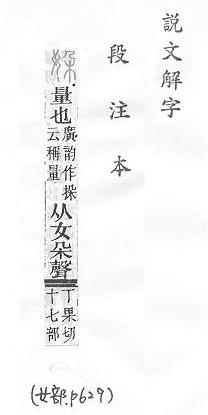 說文解字
段注本
㛆.量也廣韵作挅云稱量从女朵聲丁果切十七部
(女部.p629)